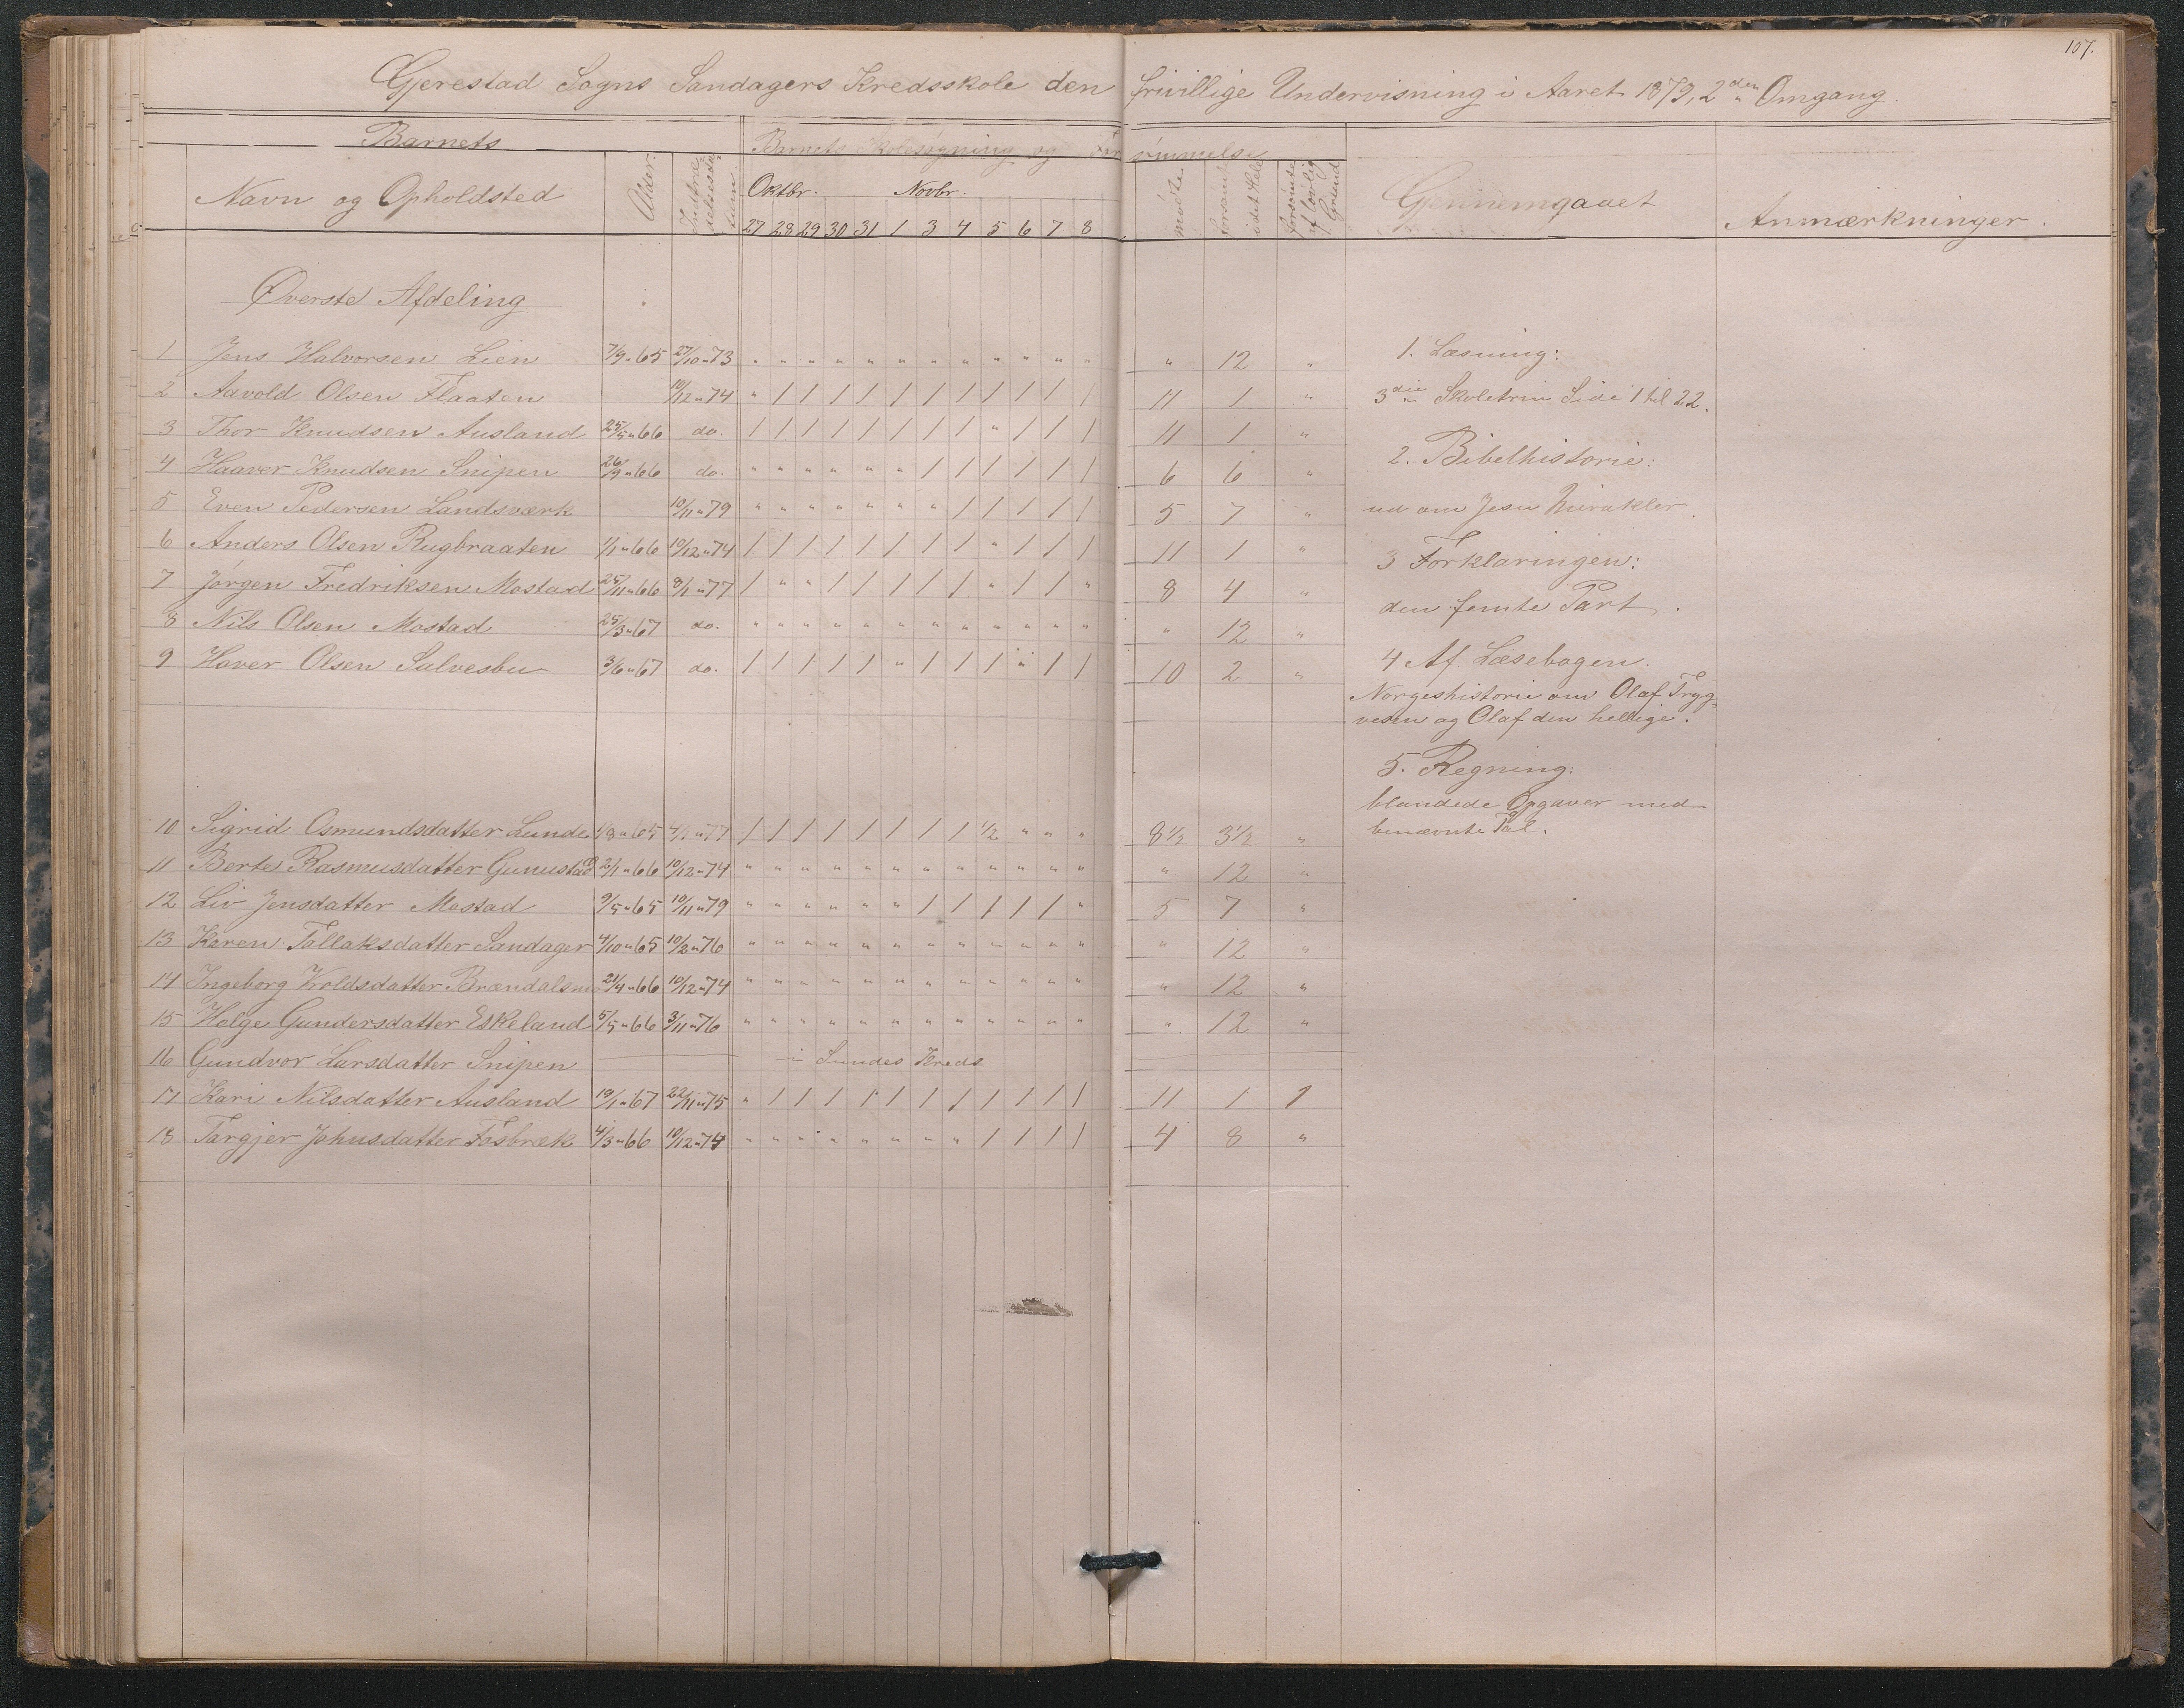 107.
Gjerestad Sogns Sandagers Kredsskole den frivillige Undervisning i Aaret 1879, 2den Omgang.
Barnets Barnets Skolesøgning og Forsømmelse
Navn og Opholdsted Alder Indtrædelsesdatum Oktbr. Novbr. mødte forsømte i det Hele forsømte af lovlig Grund Gjennemgaaet Anmærkninger.
27 28 29 30 31 1 3 4 5 6 7 8
Øverste Afdeling
1 Jens Halvorsen Lien 7/9 " 65 27/10 " 73 " " " " " " " " " " " " " 12 "
2 Aavold Olsen Flaaten 10/12 " 74 " / / / / / / / / / / / 11 1 "
3 Thor Knudsen Ausland 25/5 " 66 do. / / / / / / / / " / / / 11 1 "
4 Haaver Knudsen Snipen 26/9 " 66 do. " " " " " " / / / / / / 6 6 "
5 Even Pedersen Landsværk 10/11 " 79 " " " " " " " / / / / / 5 7 "
6 Anders Olsen Rugbraaten 1/1 " 66 10/12 " 74 / / / / / / / / " / / / 11 1 "
7 Jørgen Fredriksen Mostad 25/11 " 66 8/1 " 77 / " " / / / / / " / / " 8 4 "
8 Nils Olsen Mostad 25/3 " 67 do. " " " " " " " " " " " " " 12 "
9 Haver Olsen Salvesbu 3/6 " 67 do. / / / / / " / / / " / / 10 2 "
10 Sigrid Osmundsdatter Lunde 1/8 " 65 4/1 " 77 / / / / / / / / 1/2 " " " 8 1/2 3 1/2 "
11 Berte Rasmusdatter Gunustad 2/1 " 66 10/12 " 74 " " " " " " " " " " " " " 12 "
12 Liv Jensdatter Mostad 9/5 " 65 10/11 " 79 " " " " " " / / / / / " 5 7 "
13 Karen Tallaksdatter Sandager 4/10 " 65 10/2 " 76 " " " " " " " " " " " " " 12 "
14 Ingeborg Kroldsdatter Brændalsmo 21/4 " 66 10/12 " 74 " " " " " " " " " " " " " 12 "
15 Helge Gundersdatter Eskeland 5/5 " 66 3/11 " 76 " " " " " " " " " " " " " 12 "
16 Gundvor Larsdatter Snipen i Sundes Kreds
17 Kari Nilsdatter Ausland 19/1 " 67 22/11 " 75 " / / / / / / / / / / / 11 1 1
18 Targjer Johnsdatter Fosbræk 4/3 " 66 10/12 " 74 " " " " " " " " / / / / 4 8 "
1. Læsning:
3die Skoletrin Side 1 til 22.
2. Bibelhistorie:
ud om Jesu Mirakler.
3 Forklaringen:
den femte Part.
4 Af Læsebogen.
Norgeshistorie om Olaf Tryg-
vesen og Olaf den hellige.
5. Regning:
blandede Opgaver med
benævnte Tal.